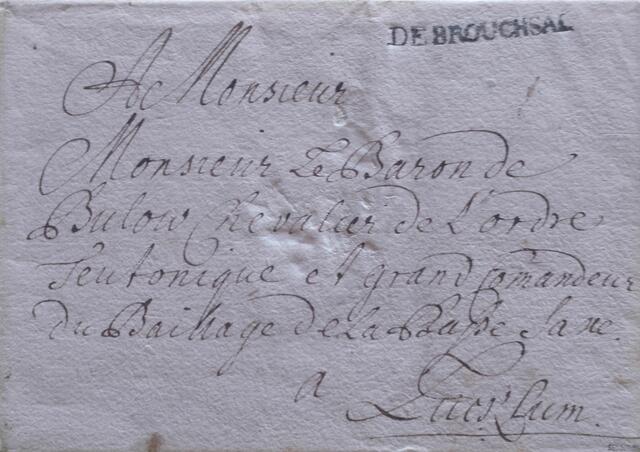 DE BROUCHSAL
A Monsieur
Monsieur Le Baron de
Bulow Chevalier de L'ordre
Teutonique et grand Comandeur
du Bailliage de La Basse Saxe.
a Lucs'Lum.